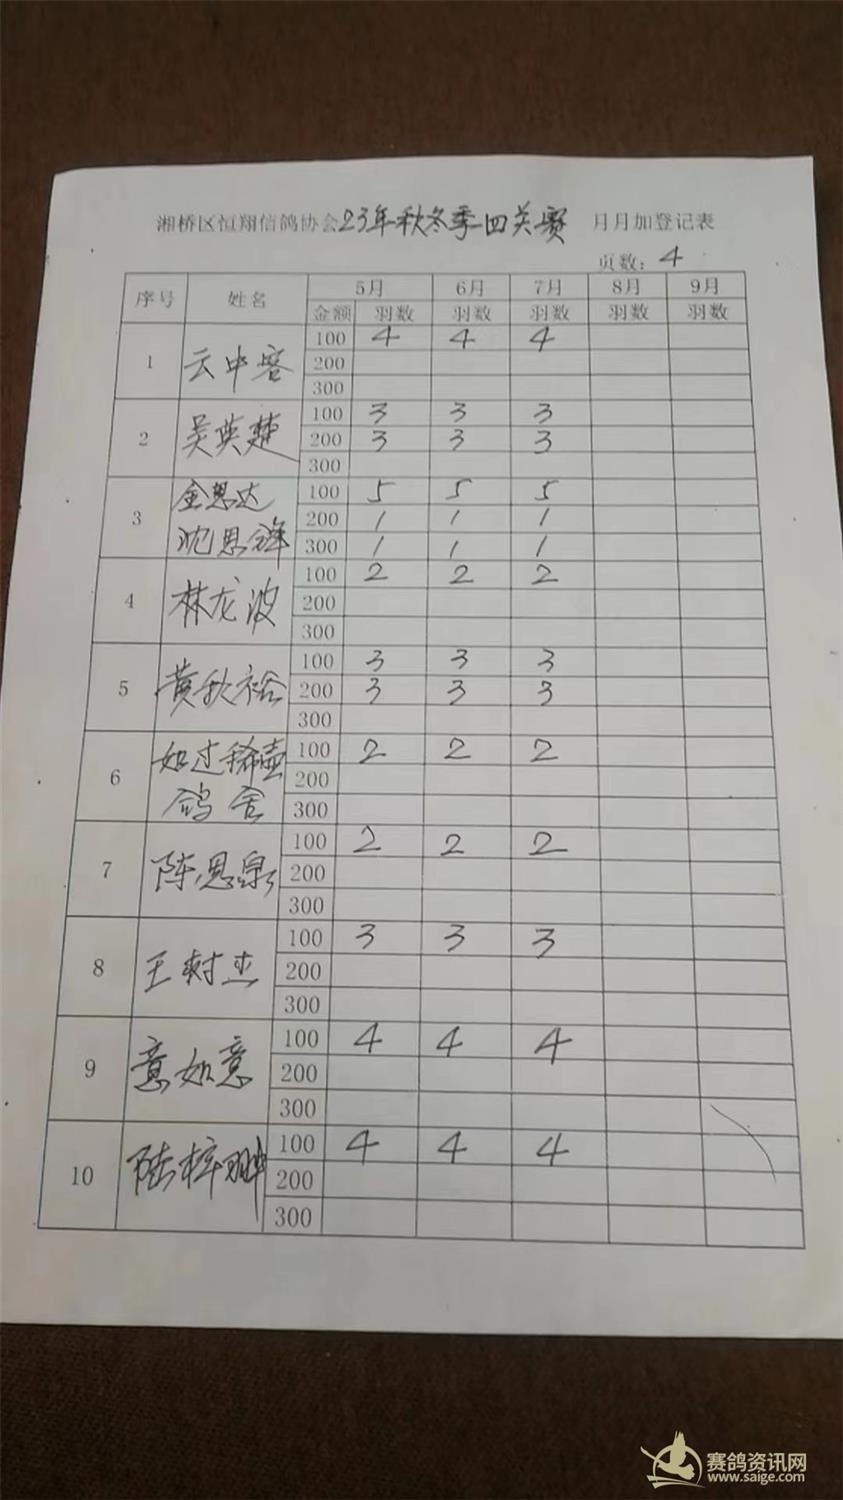 湘桥区恒翔信鸽协会23年秋冬季四关赛 月月加登记表
页数：4
序号 姓名 5月 6月 7月 8月 9月
金额 羽数 羽数 羽数 羽数 羽数
1 云中客 100 4 4 4
200
300
2 吴英楚 100 3 3 3
200 3 3 3
300
3 金思达 100 5 5 5
沈思锋 200 1 1 1
300 1 1 1
4 林龙波 100 2 2 2
200
300
5 黄秋裕 100 3 3 3
200 3 3 3
300
6 如过稀壶 100 2 2 2
鸽舍 200
300
7 陈恩泉 100 2 2 2
200
300
8 王树杰 100 3 3 3
200
300
9 意如意 100 4 4 4
200
300
10 陆梓翀 100 4 4 4
200
300
赛鸽资讯网
www.saige.com